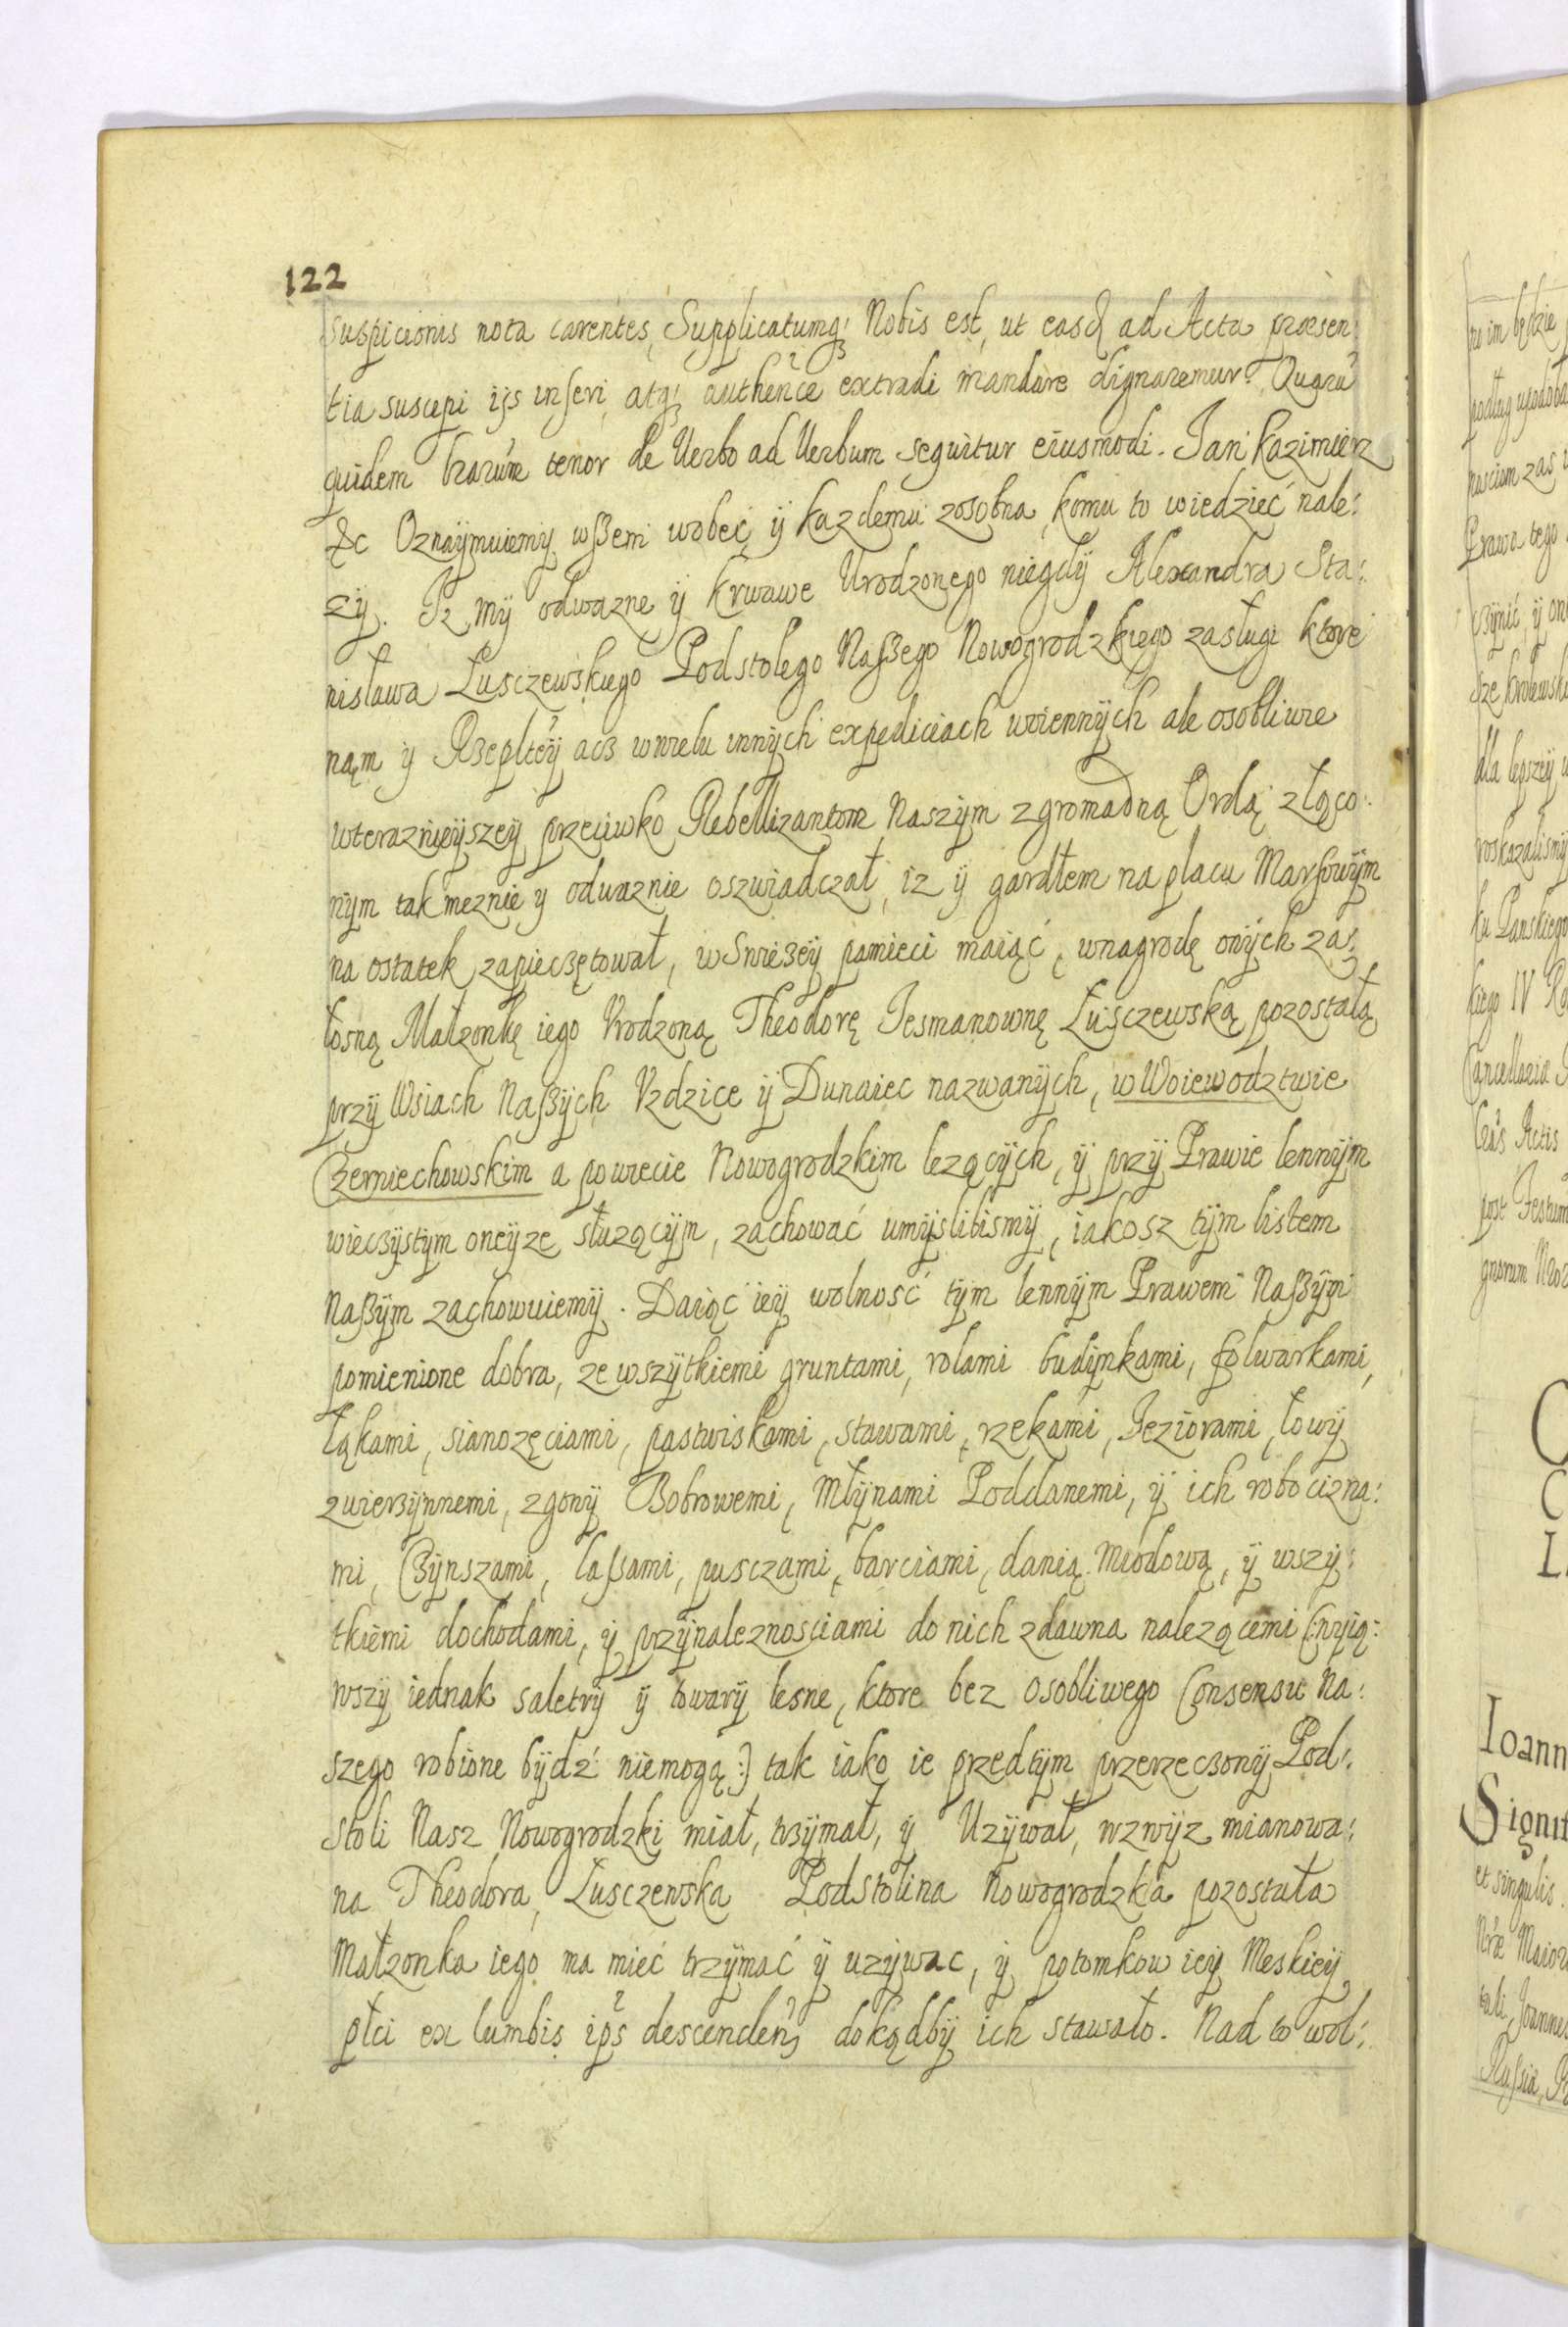 122
Suspicionis nota carentes, Supplicatumq; Nobis est, ut easd ad Acta præsen
tia suscepi ijs inseri, atq; authence extradi mandare dignaremur. Quarū
quidem lrarūm tenor de Verbo ad Verbum sequitur eiusmodi. Jan Kazimierz
&c Oznaÿmuiemÿ wßem wobec ÿ kazdemu zosobna, komu to wiedzieć nale:
zÿ. Iz mÿ odwazne ÿ krwawe Urodzonego niegdÿ Alexandra Sta:
nisława Łusczewskiego Podstolego Naßego Nowogrodzkiego zasługi ktore
nąm ÿ Rzepltēÿ acz wwielu innÿch expediciach woiennÿch ale osobliwie
wteraznieÿszeÿ przeciwko Rebellizantom Naszÿm zgromadną Ordą złąco:
nÿm tak meznie y odwaznie oszwiadczał, iz ÿ gardłem na placu Marsowÿm
na ostatek zapieczętował, w Swiezeÿ pamieci maiąć, wnagrodę onÿch za:
łosną Małzonkę iego Vrodzoną Theodorę Jesmanownę Łusczewską pozostałą
przÿ Wsiach Naßÿch Vzdzice ÿ Dunaiec nazwanÿch, w Woiewodztwie
Czerniechowskim a powiecie Nowogrodzkim lezącÿch, ÿ przÿ Prawie lennÿm
wieczÿstÿm oneÿze słuzącÿm, zachować umÿslilismÿ, iakosz tÿm listem
Naßÿm zachowuiemÿ. Daiąc ieÿ wolność tÿm lennÿm Prawem Naßÿm
pomienione dobra, ze wszÿtkiemi gruntami, rolami budÿnkami, folwarkami,
łąkami, sianozęciami, pastwiskami, stawami, rzekami, Jeziorami, łowÿ
zwierzÿnnemi, zgonÿ Bobrowemi, Młÿnami Poddanemi, ÿ ich robocizna:
mi, Czÿnszami, laßami, pusczami, barciami, danią miodową, ÿ wszÿ:
tkiemi dochodami, ÿ przÿnaleznosciami do nich zdawna nalezącemi (:wÿią:
wszÿ iednak saletrÿ ÿ towarÿ lesne, ktore bez osobliwego Consensu Na:
szego robione bÿdź niemogą:) tak iako ie przedtÿm przerzeczonÿ Pod:
stoli Nasz Nowogrodzki miał, trzÿmał, ÿ Uzÿwał, wzwÿz mianowa:
na Theodora, Łusczewska Podstolina Nowogrodzka pozostała
Małzonka iego ma mieć trzÿmać ÿ uzÿwac, ÿ potomkow ieÿ Meskieÿ
płci ex lumbis ips descenden, dokądbÿ ich stawało. Nad to wol:
ro im będzie
podług upodoba
nosciom zas
Prawa tego
czÿnić, ÿ on
dla lepszeÿ
roskazalismÿ
ku Panskiego
kiego IV
Cancellaria
Actis
post Festum
Ioann
Signit
et singulis.
Maior
tali, Joannes
Russiæ,